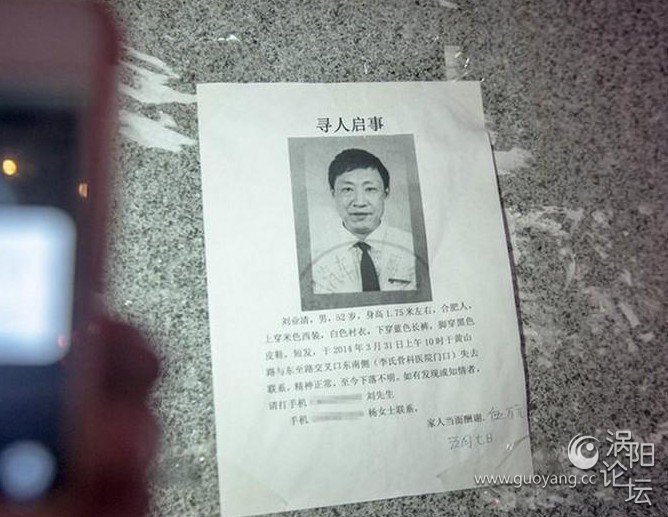 寻人启事
刘业清，男，52岁，身高1.75米左右，合肥人，
上穿米色西装，白色衬衣，下穿蓝色长裤，脚穿黑色
皮鞋，短发，于2014年3月31日上午10时于黄山
路与东至路交叉口东南侧（李氏骨科医院门口）失去
联系，精神正常，至今下落不明。如有发现或知情者，
请打手机 刘先生
手机 杨女士联系，
家人当面酬谢. 伍万元
涡阳论坛
www.guoyang.cc